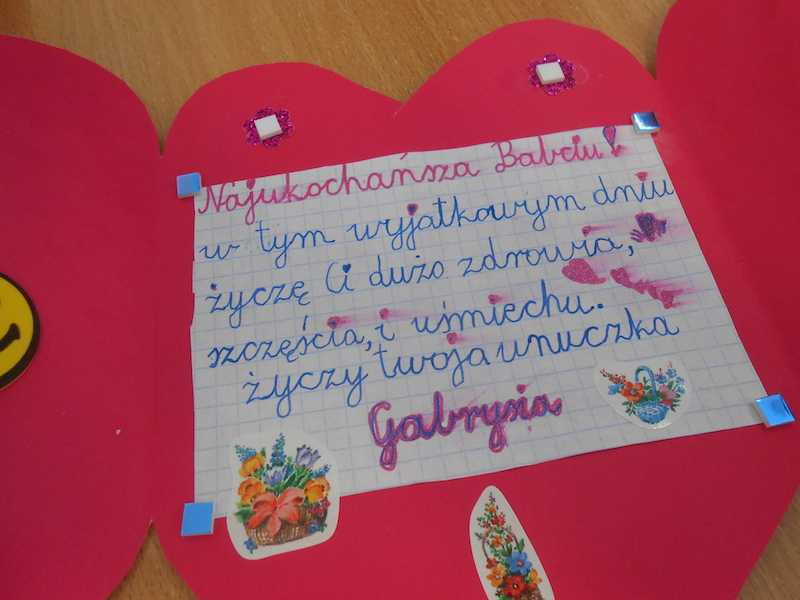 Najukochańsza Babciu!
w tym wyjątkowym dniu
życzę Ci dużo zdrowia,
szczęścia, i uśmiechu.
życzy twoja wnuczka
Gabrysia